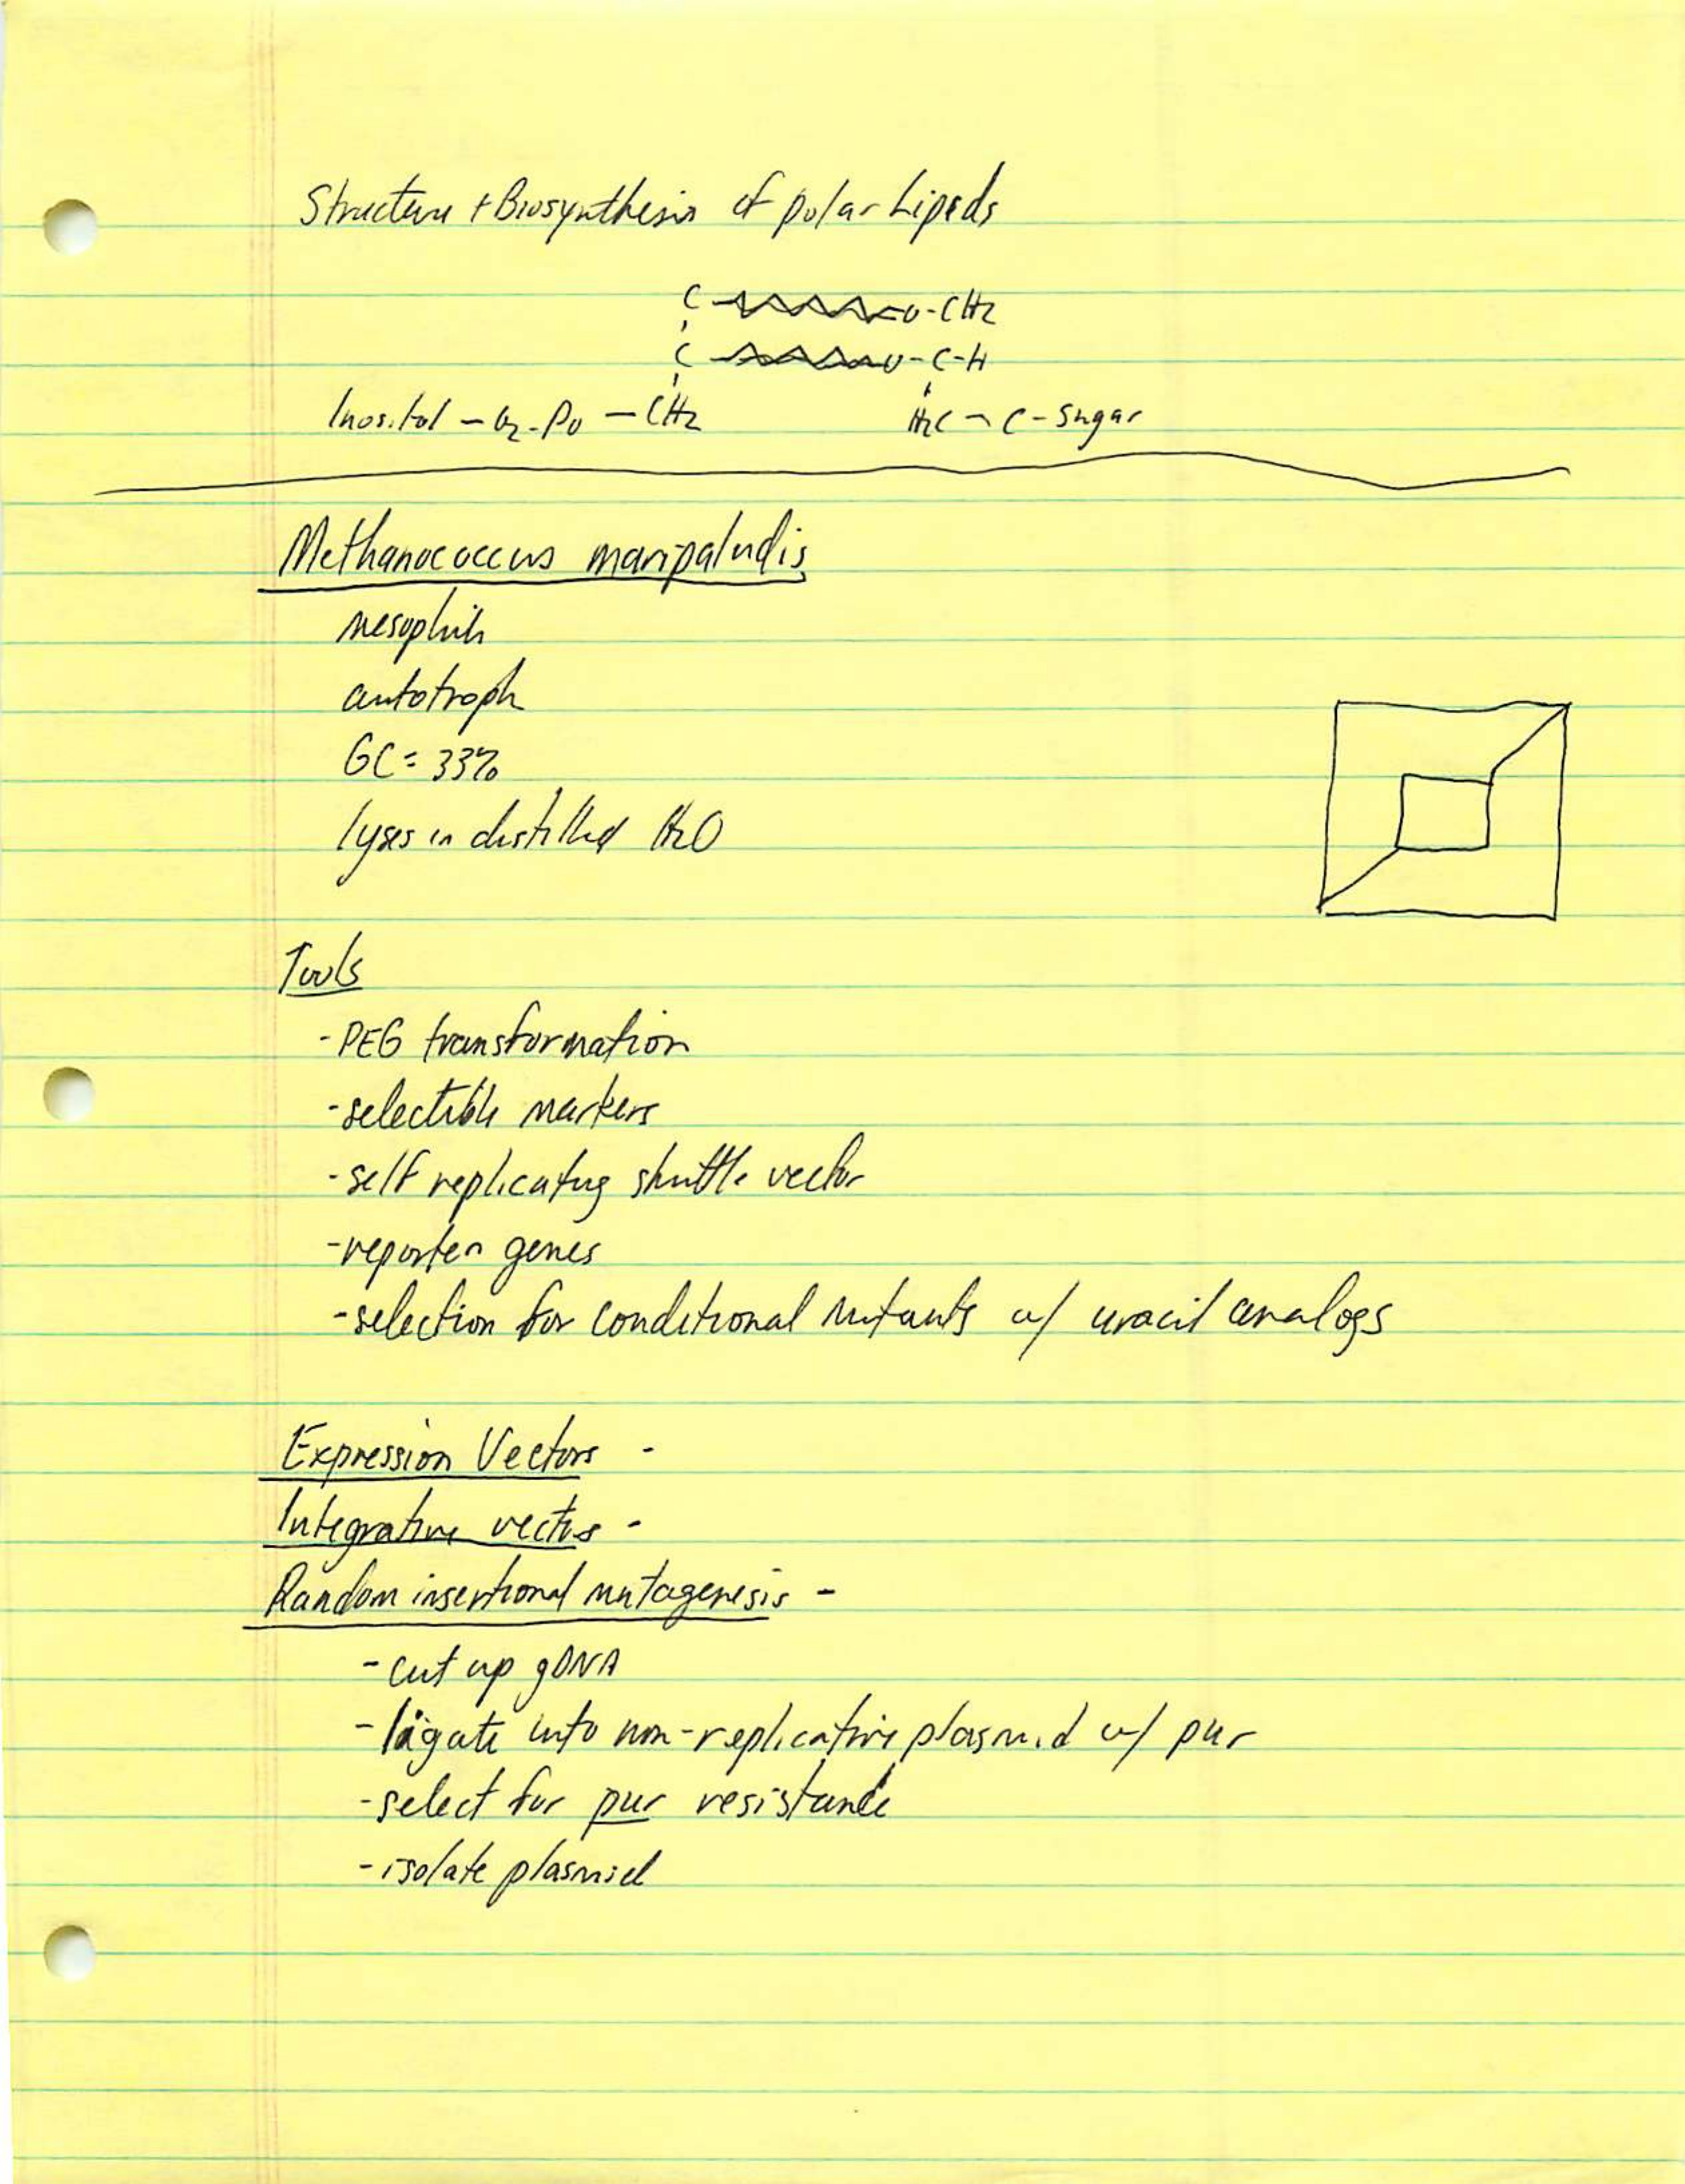 Structure + Biosynthesis of polar Lipids
C-O-CH2
C-O-C-H
Inositol - O2-PO - CH2 H2C - C - Sugar
Methanococcus maripaludis
mesophile
autotroph
GC = 33%
lyses in distilled H2O
Tools
- PEG transformation
- selectible markers
- self replicating shuttle vector
- reporter genes
- selection for conditional mutants w/ uracil analogs
Expression Vectors -
Integrative vectors -
Random insertional mutagenesis -
- cut up gDNA
- ligate into non-replicative plasmid w/ pur
- select for pur resistance
- isolate plasmid